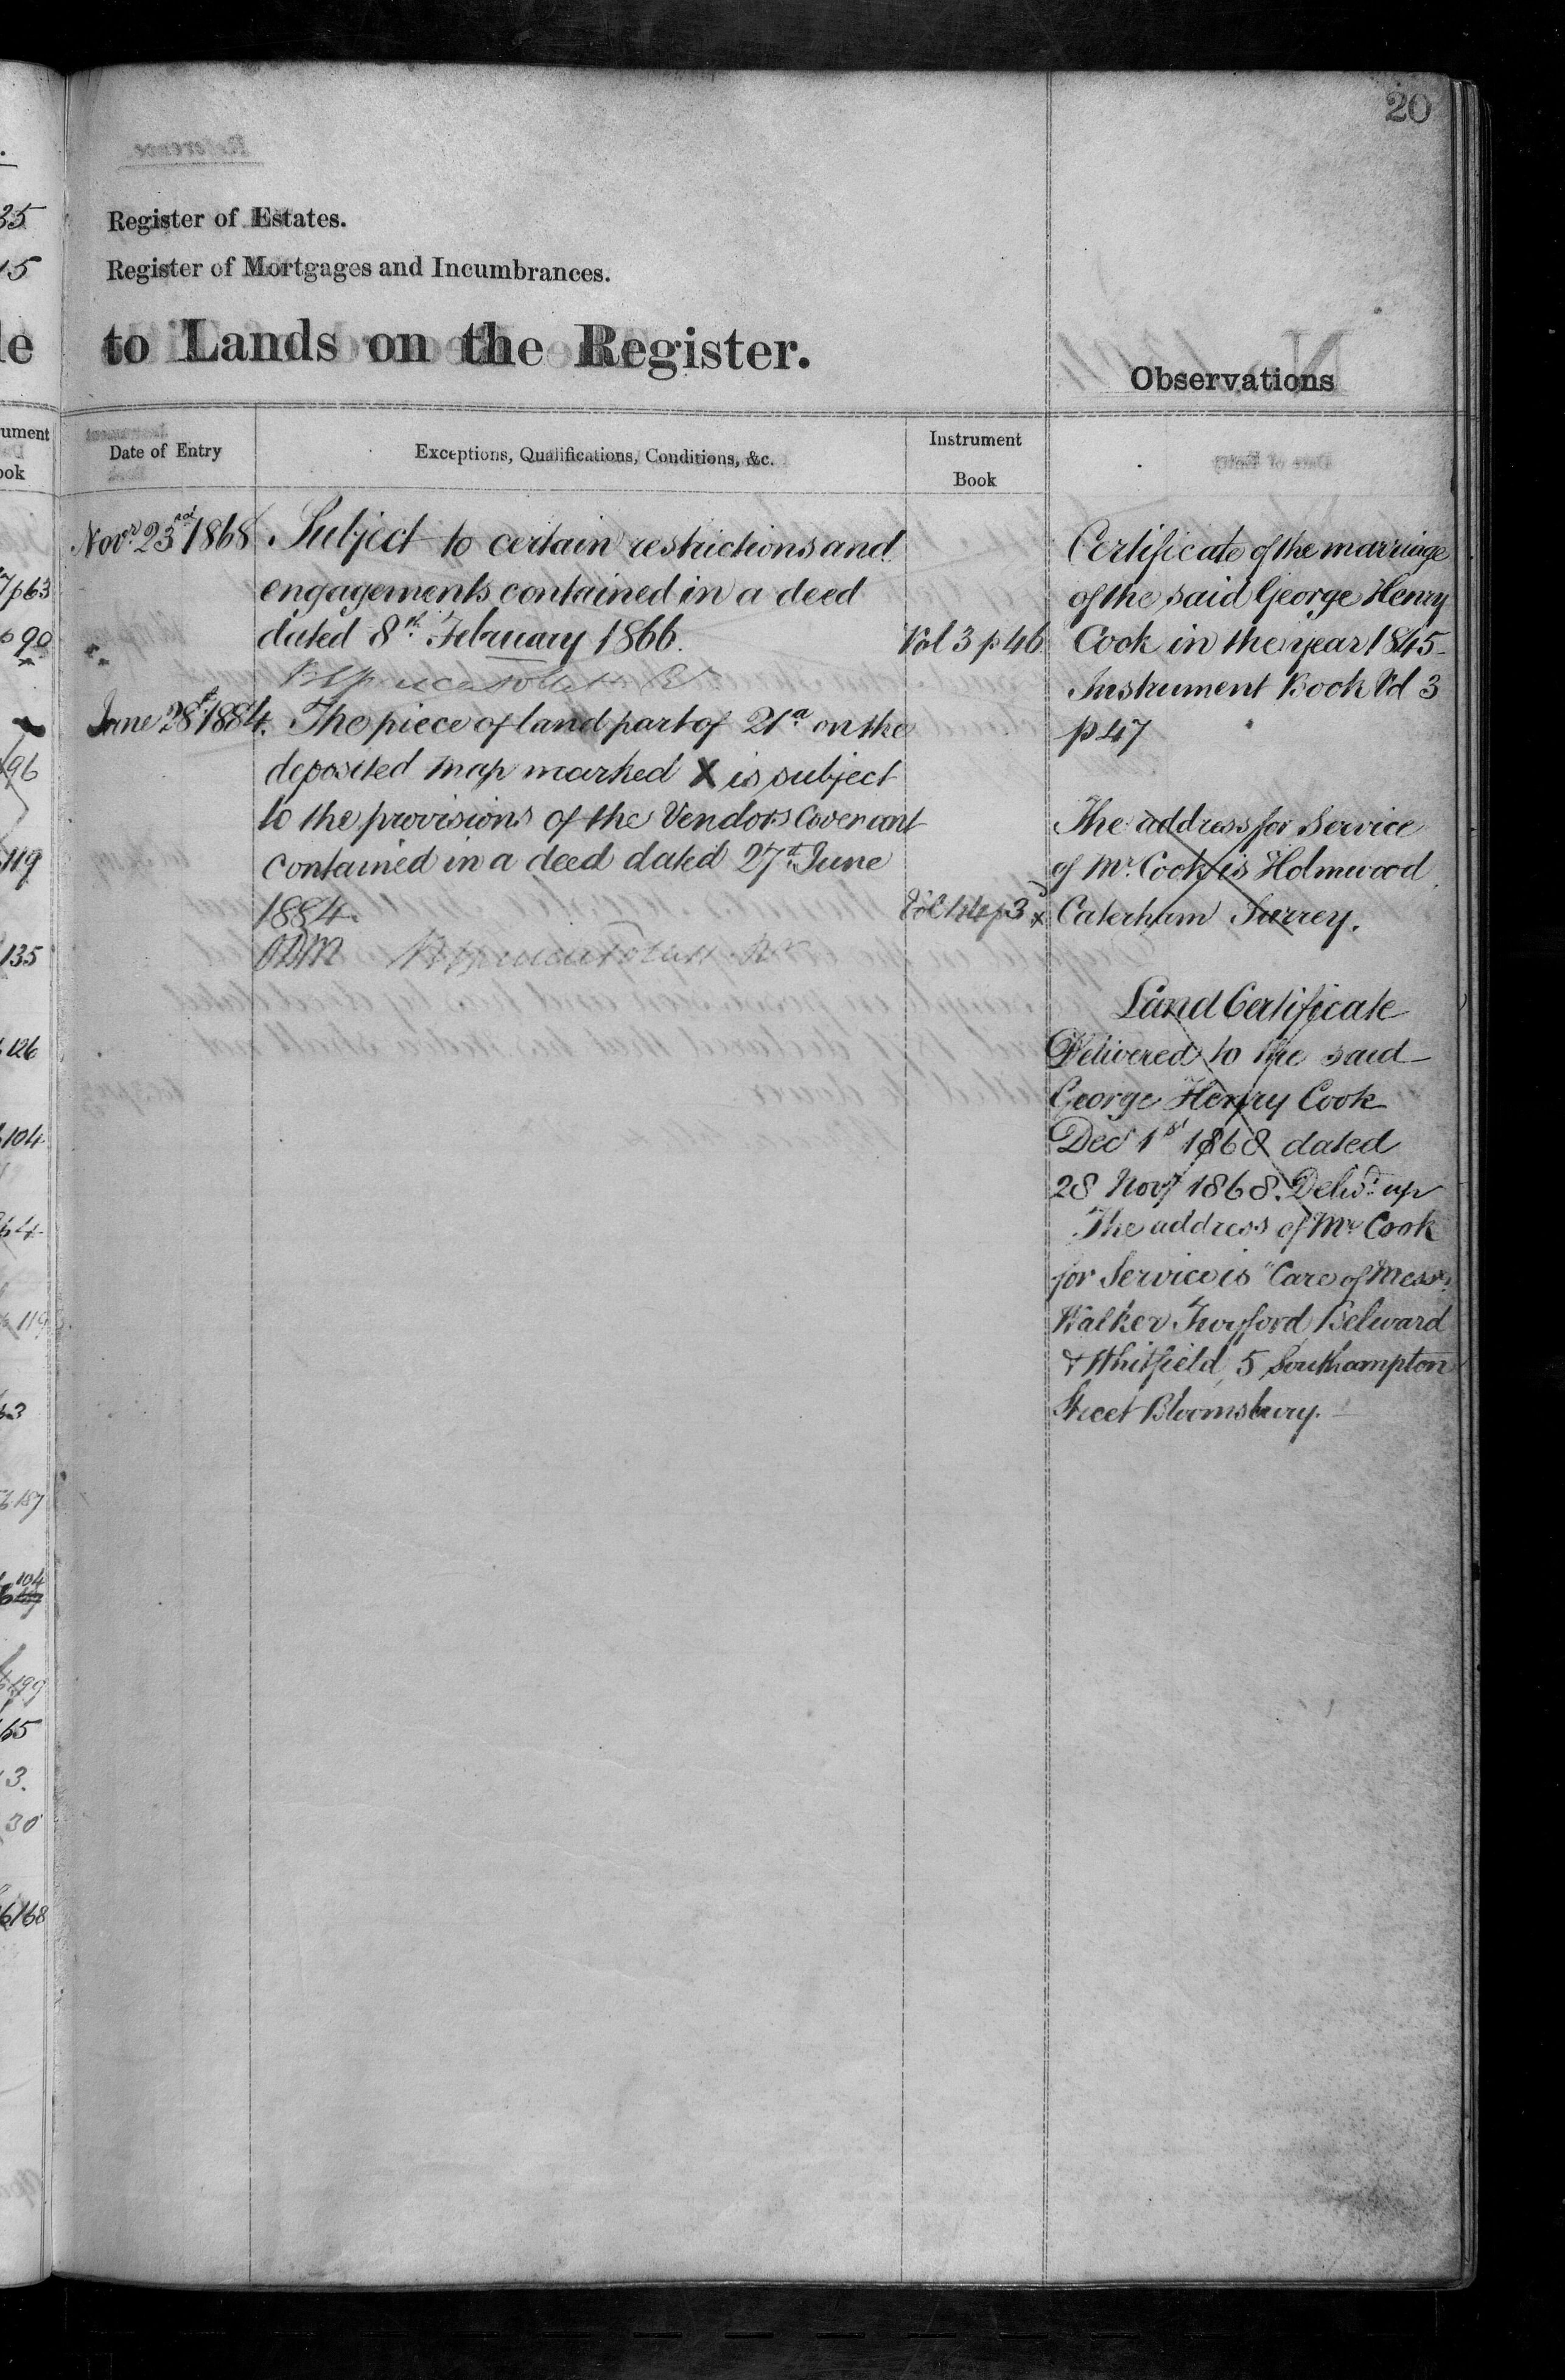 20
Register of Estates.
Register of Mortgages and Incumbrances.
to Lands on the Register.
Observations
Date of Entry
Exceptions, Qualifications, Conditions, &c.
Instrument
Book
Novr 23rd 1868
Subject to certain restrictions and
engagements contained in a deed
dated 8th February 1866.
Vol 3 p 46
June 28th 1884.
The piece of land part of 21a on the
deposited map marked X is subject
to the provisions of the Vendors Covenant
contained in a deed dated 27th June
1884.
Certificate of the marriage
of the said George Henry
Cook in the year 1845
Instrument Book Vol 3
p 47
The address for Service
of Mr. Cook is Holmwood
Caterham Surrey.
Land Certificate
Delivered to the said
George Henry Cook
Decr 1st 1868 dated
28 Novr 1868. Delivd. up
The address of Mr Cook
for Service is "Care of Messrs
Walker Twyford Belward
& Whitfield, 5 Southampton
Street Bloomsbury.